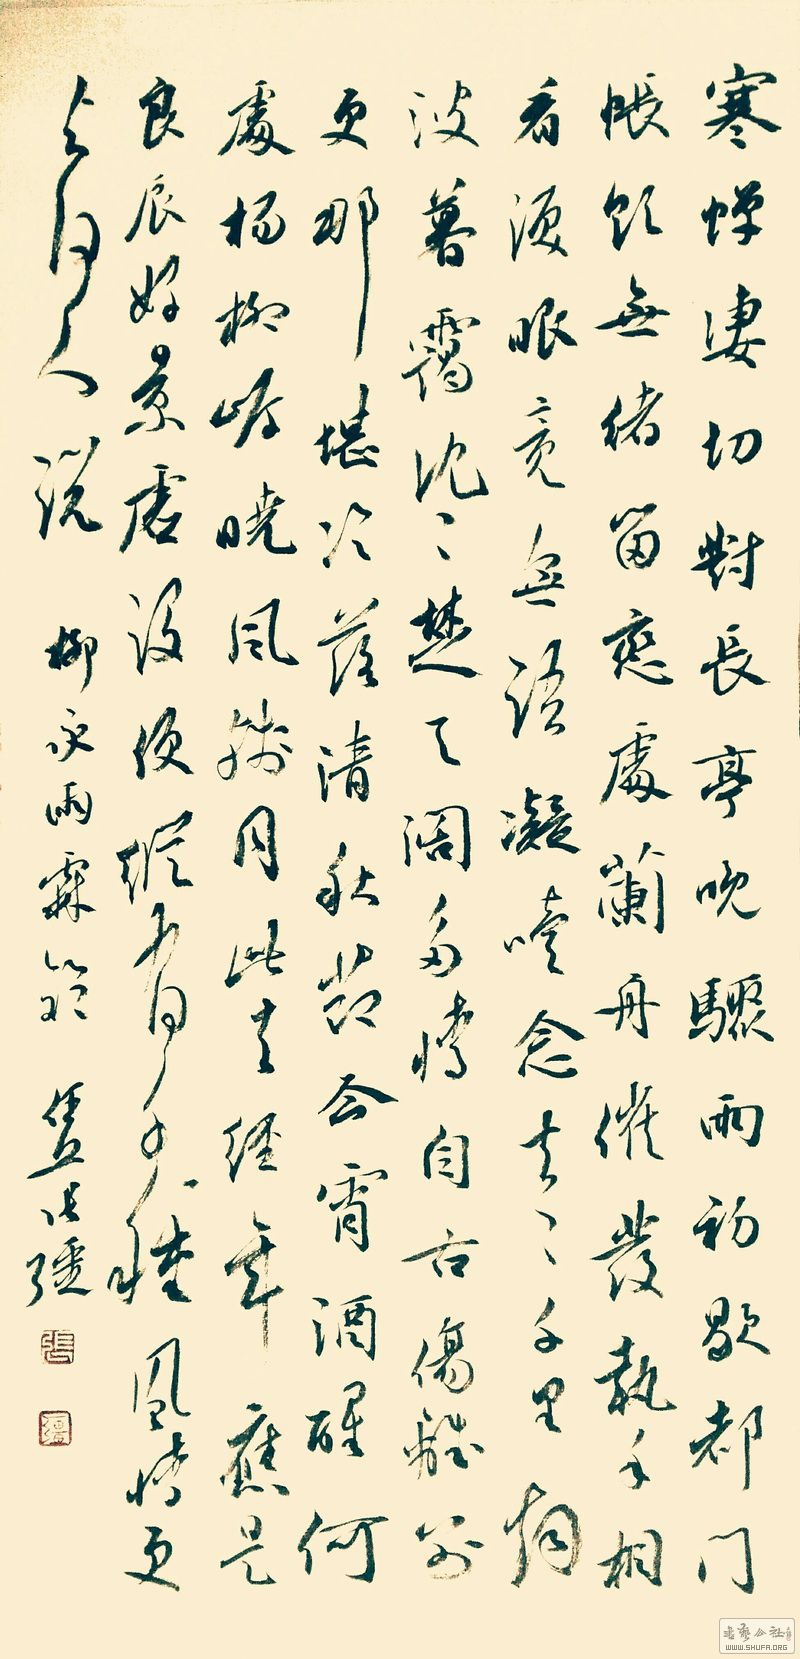 寒蟬淒切對長亭晚驟雨初歇都門
帳飲無緒留戀處蘭舟催發執手相
看淚眼竟無語凝噎念去〻千里烟
波暮靄沈〻楚天闊多情自古傷離別
更那堪冷落清秋節今宵酒醒何
處楊柳岸曉風殘月此去經年應是
良辰好景虛設便縱有千種風情更
與何人說 柳永雨霖鈴 張疆
張
疆
WWW.SHUFA.ORG